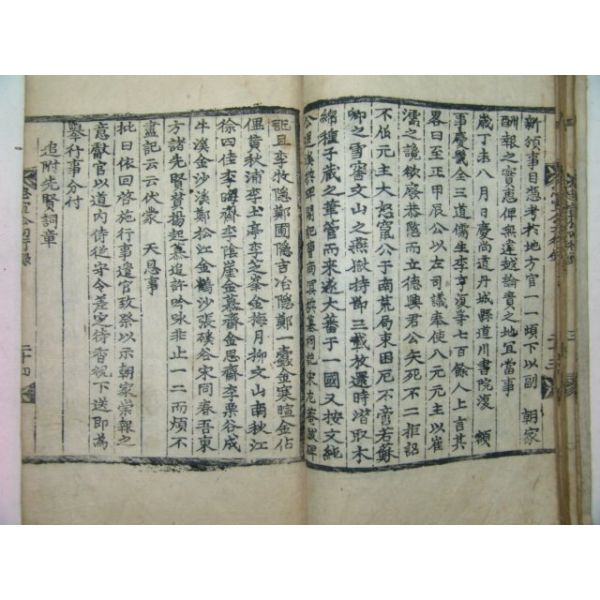 新領事目憑考於地方官一一頉下以副 朝家
酬報之實悳俾無違越論責之地宜當事
歲丁未八月日慶尚道丹城縣道川書院復 額
事慶畿全三道儒生李亨等七百餘人上言其
畧曰至正甲辰公以左司諫奉使八元元主以崔
濡之譏欲廢恭愍而立德興君公矢死不二拒詔
不伯元主大怒竄公于南荒局束困厄不啻若蘇
卿之雪窖文山之燕獄持節三載放還時潜取木
綿種子藏之筆管而來遂大蕃于一國又按文純
公退溪碑閣記曺南冥墓祠記宋尤菴碑
記且李牧隱鄭圃隱吉冶隱鄭一蠹金寒暄金佔
俚黃秋浦李土亭李芝峯金梅月柳文山南秋江
徐四佳李晦齋李陰崖金慕齋金思齋李栗谷成
牛溪金沙溪鄭松江金鶴沙張磎谷宋同春吾東
方諸先賢賛揚起慕追許吟咏非止一二而煩不
盡記云云伏蒙 天恩事
批曰依回啓施行事遣官致祭以示朝家崇報之
意獻官以道內侍從守令差定待香祝下送即爲
擧行事分付
追附先賢詞章
二十四